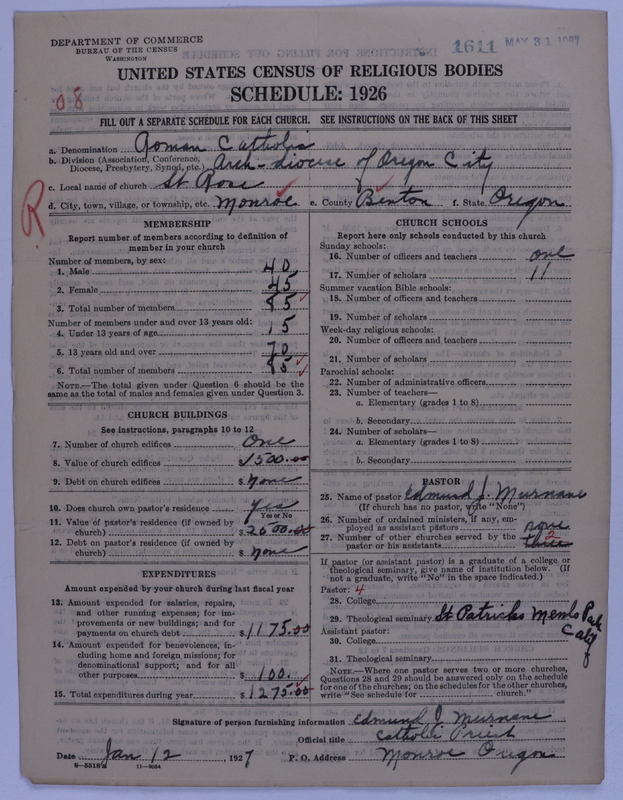 DEPARTMENT OF COMMERCE
BUREAU OF THE CENSUS
WASHINGTON
1611 MAY 31 1927
UNITED STATES CENSUS OF RELIGIOUS BODIES
SCHEDULE: 1926
08
FILL OUT A SEPARATE SCHEDULE FOR EACH CHURCH. SEE INSTRUCTIONS ON THE BACK OF THIS SHEET
a. Denomination Roman Catholic
b. Division (Association, Conference, Diocese, Presbytery, Synod, etc.) Arch-diocese of Oregon City
c. Local name of church St Rose
d. City, town, village, or township, etc. Monroe e. County Benton f. State Oregon
R
MEMBERSHIP
Report number of members according to definition of
member in your church
Number of members, by sex:
1. Male 40
2. Female 45
3. Total number of members 85
Number of members under and over 13 years old:
4. Under 13 years of age 15
5. 13 years old and over 70
6. Total number of members 85
NOTE.—The total given under Question 6 should be the
same as the total of males and females given under Question 3.
CHURCH BUILDINGS
See instructions, paragraphs 10 to 12
7. Number of church edifices One
8. Value of church edifices $1500.00
9. Debt on church edifices $ None
10. Does church own pastor's residence Yes
Yes or No
11. Value of pastor's residence (if owned by
church) $2000.00
12. Debt on pastor's residence (if owned by
church) $ None
EXPENDITURES
Amount expended by your church during last fiscal year
13. Amount expended for salaries, repairs,
and other running expenses; for im-
provements or new buildings; and for
payments on church debt $1175.00
14. Amount expended for benevolences, in-
cluding home and foreign missions; for
denominational support; and for all
other purposes $ 100.
15. Total expenditures during year $1275.00
CHURCH SCHOOLS
Report here only schools conducted by this church
Sunday schools:
16. Number of officers and teachers one
17. Number of scholars 11
Summer vacation Bible schools:
18. Number of officers and teachers
19. Number of scholars
Week-day religious schools:
20. Number of officers and teachers
21. Number of scholars
Parochial schools:
22. Number of administrative officers
23. Number of teachers—
a. Elementary (grades 1 to 8)
b. Secondary
24. Number of scholars—
a. Elementary (grades 1 to 8)
b. Secondary
PASTOR
25. Name of pastor Edmund J. Murnane
(If church has no pastor, write "None")
26. Number of ordained ministers, if any, em-
ployed as assistant pastors none
27. Number of other churches served by the
pastor or his assistants three 2
If pastor (or assistant pastor) is a graduate of a college or
theological seminary, give name of institution below. (If
not a graduate, write "No" in the space indicated.)
Pastor: 4
28. College
29. Theological seminary St Patricks Menlo Park
Calif
Assistant pastor:
30. College
31. Theological seminary
NOTE.—Where one pastor serves two or more churches,
Questions 28 and 29 should be answered only on the schedule
for one of the churches; on the schedules for the other churches,
write "See schedule for church."
Signature of person furnishing information Edmund J Murnane
Official title Catholic Priest
Date Jan 12 1927 P. O. Address Monroe Oregon
11—9054